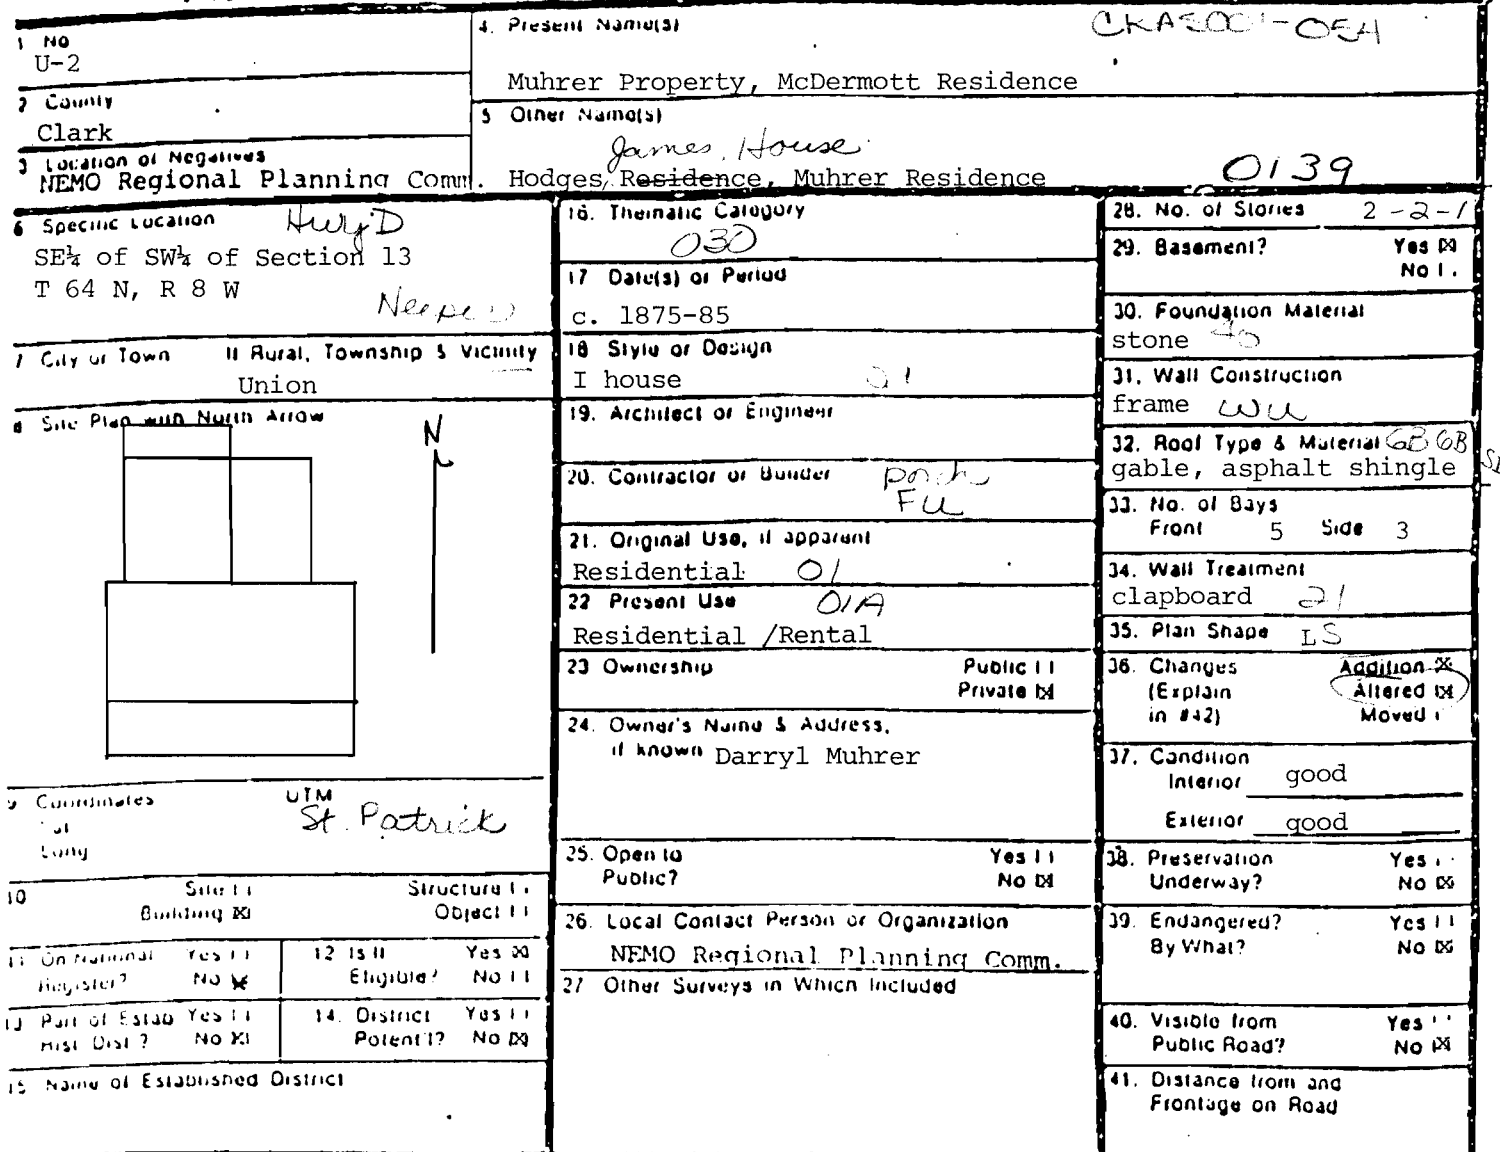 CKAS001-054
1 No
U-2
4. Present Name(s)
Muhrer Property, McDermott Residence
2 County
Clark
5 Other Name(s)
James House
Hodges, Residence, Muhrer Residence
0139
3 Location of Negatives
NEMO Regional Planning Comm.
6 Specific Location
Hwy D
SE¼ of SW¼ of Section 13
T 64 N, R 8 W
7 City or Town If Rural, Township & Vicinity
Union
8 Site Plan with North Arrow
N
9 Coordinates UTM
Lat
Long
St. Patrick
10 Site
Structure
Building ☒
Object
11 On National Register? Yes
No ☒
12 Is It Eligible? Yes ☒
No
13 Part of Estab Hist Dist? Yes
No ☒
14. District Potent'l? Yes
No ☒
15 Name of Established District
16. Thematic Category
030
17 Date(s) or Period
c. 1875-85
18 Style or Design
I house
19. Architect or Engineer
20. Contractor or Builder
porch
FU
21. Original Use, if apparent
Residential 01
22 Present Use 01A
Residential /Rental
23 Ownership Public
Private ☒
24. Owner's Name & Address,
if known Darryl Muhrer
25. Open to Yes
Public? No ☒
26. Local Contact Person or Organization
NEMO Regional Planning Comm.
27 Other Surveys in Which Included
28. No. of Stories 2-2-1
29. Basement? Yes ☒
No
30. Foundation Material
stone 40
31. Wall Construction
frame WU
32. Roof Type & Material GB GB
gable, asphalt shingle
33. No. of Bays
Front 5 Side 3
34. Wall Treatment
clapboard 21
35. Plan Shape LS
36. Changes Addition ☒
(Explain Altered ☒
in #42) Moved
37. Condition
Interior good
Exterior good
38. Preservation Yes
Underway? No ☒
39. Endangered? Yes
By What? No ☒
40. Visible from Yes
Public Road? No ☒
41. Distance from and
Frontage on Road